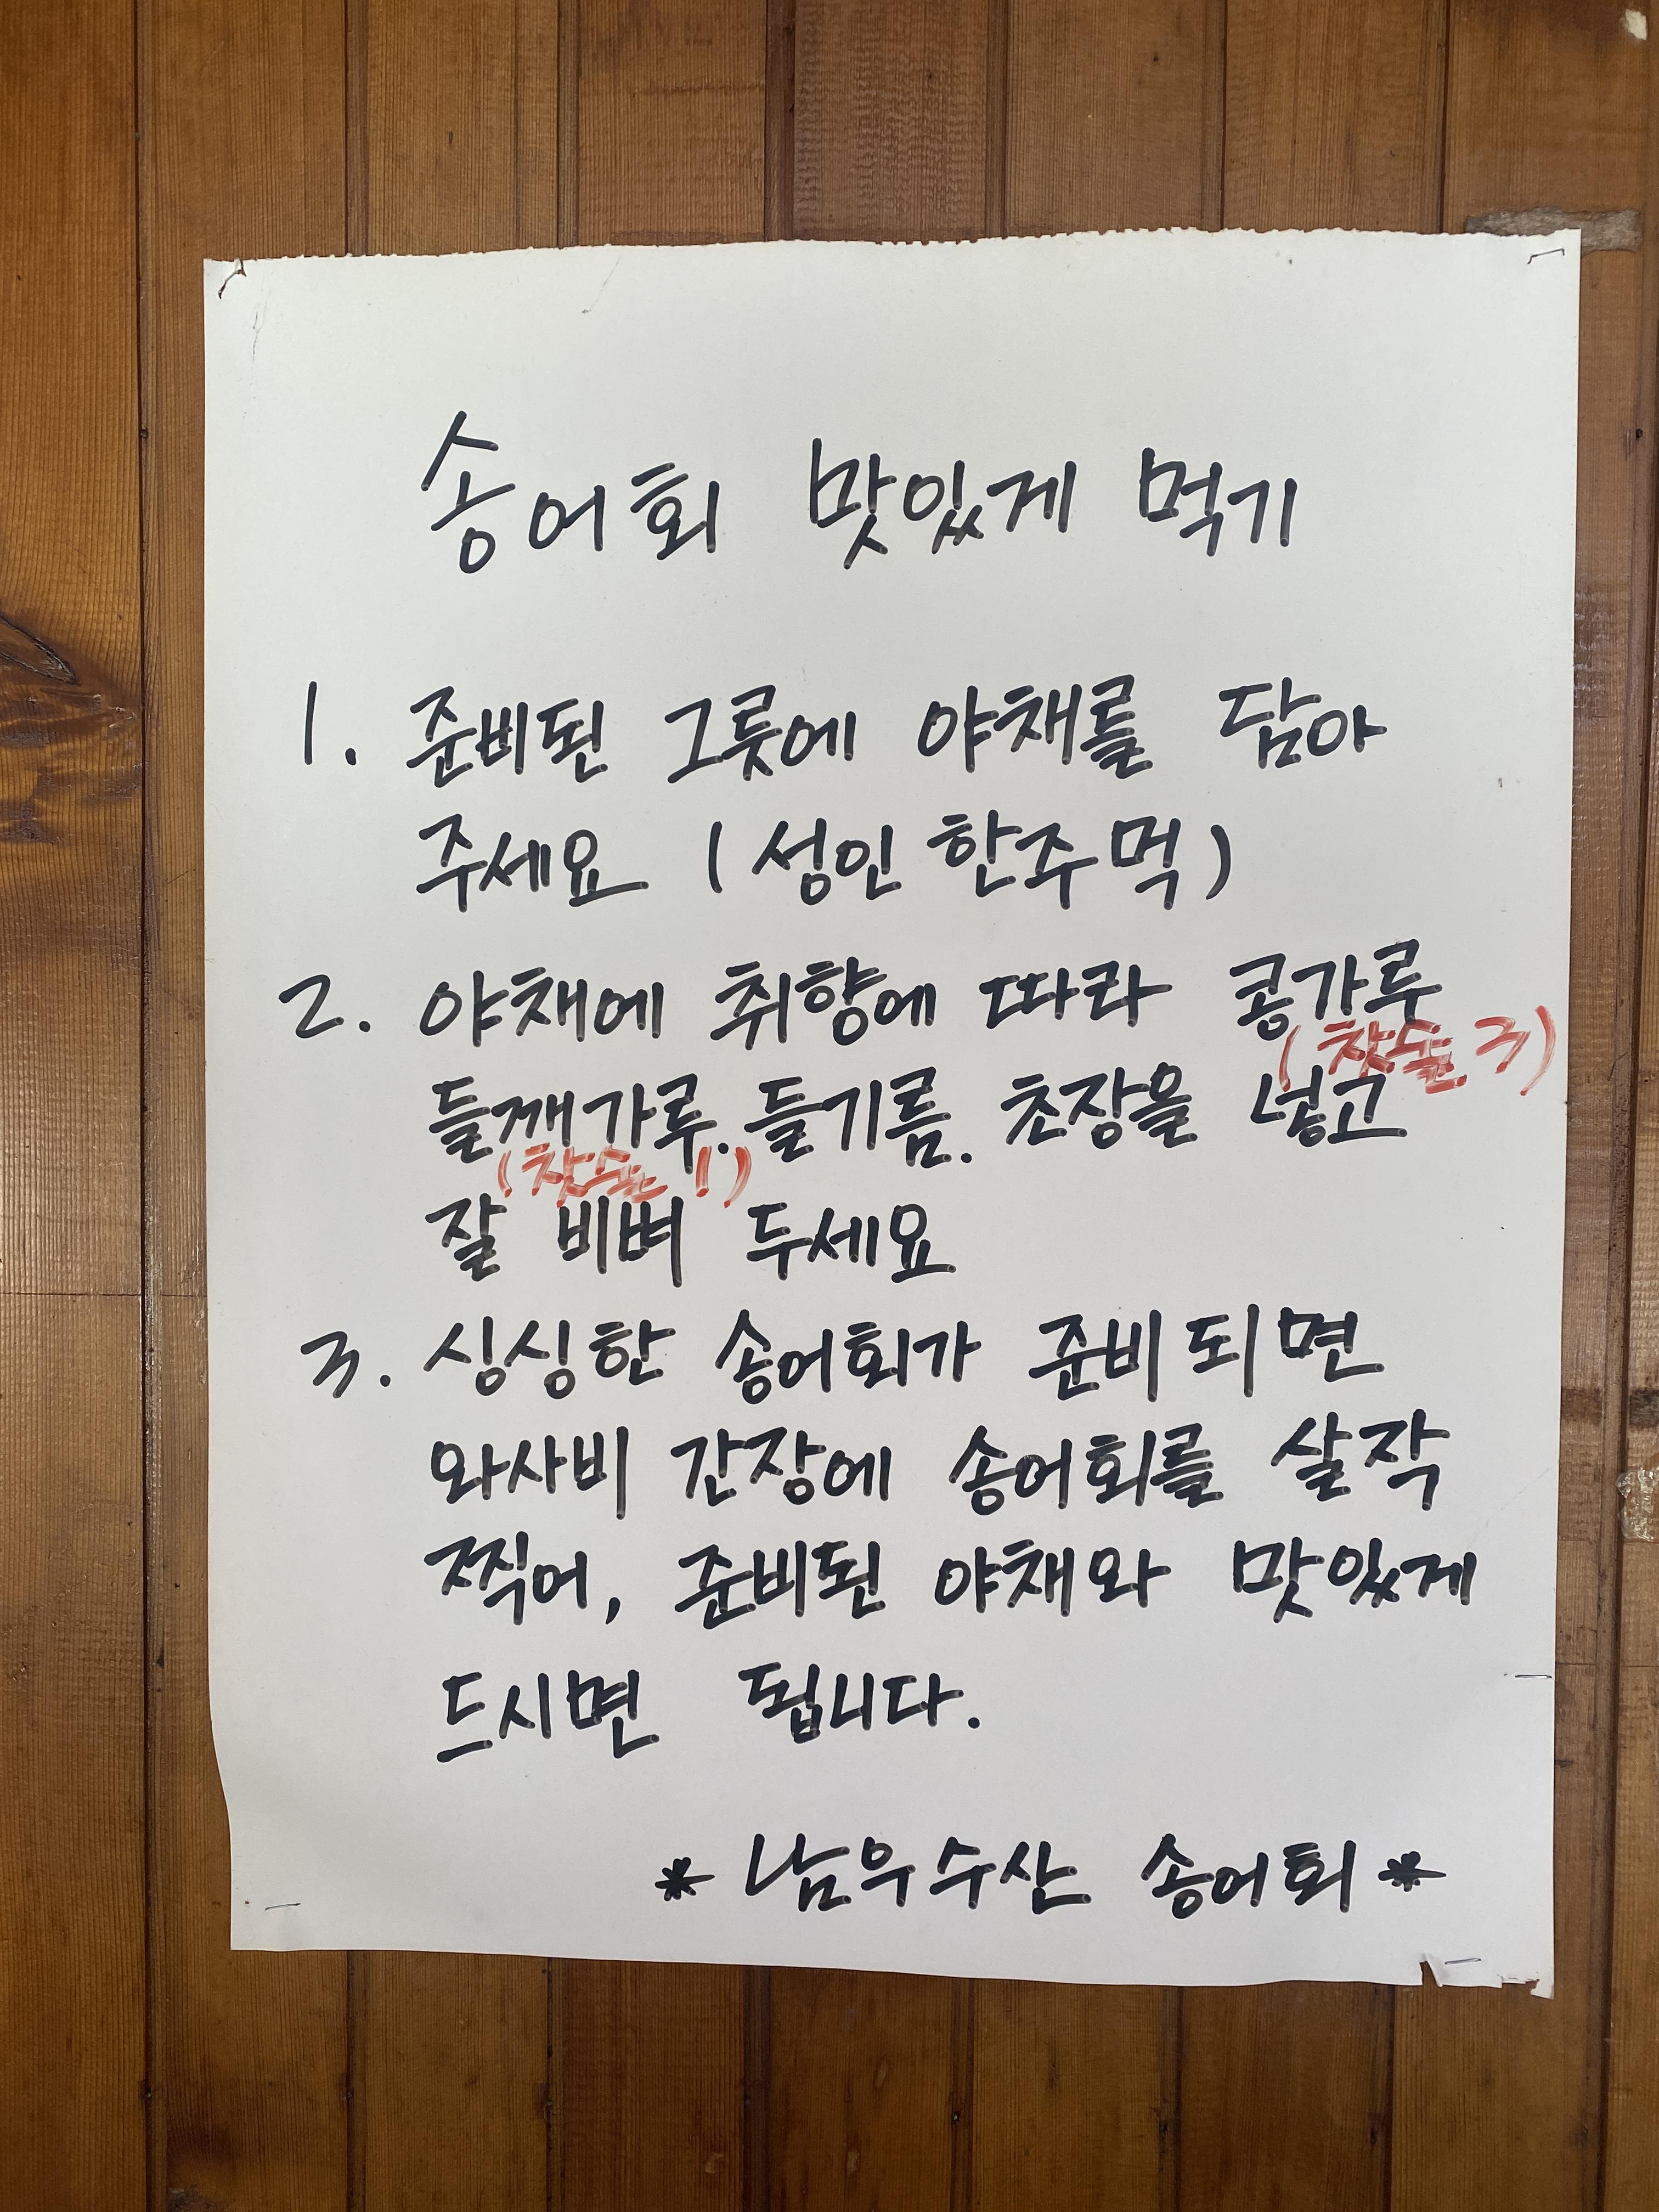 송어회 맛있게 먹기
1. 준비된 그릇에 야채를 담아
주세요 (성인 한주먹)
2. 야채에 취향에 따라 콩가루
(찻술 3)
들깨가루. 들기름. 초장을 넣고
(찻술 1)
잘 비벼 두세요
3. 싱싱한 송어회가 준비되면
와사비 간장에 송어회를 살작
찍어, 준비된 야채와 맛있게
드시면 됩니다.
* 남우수산 송어회 *